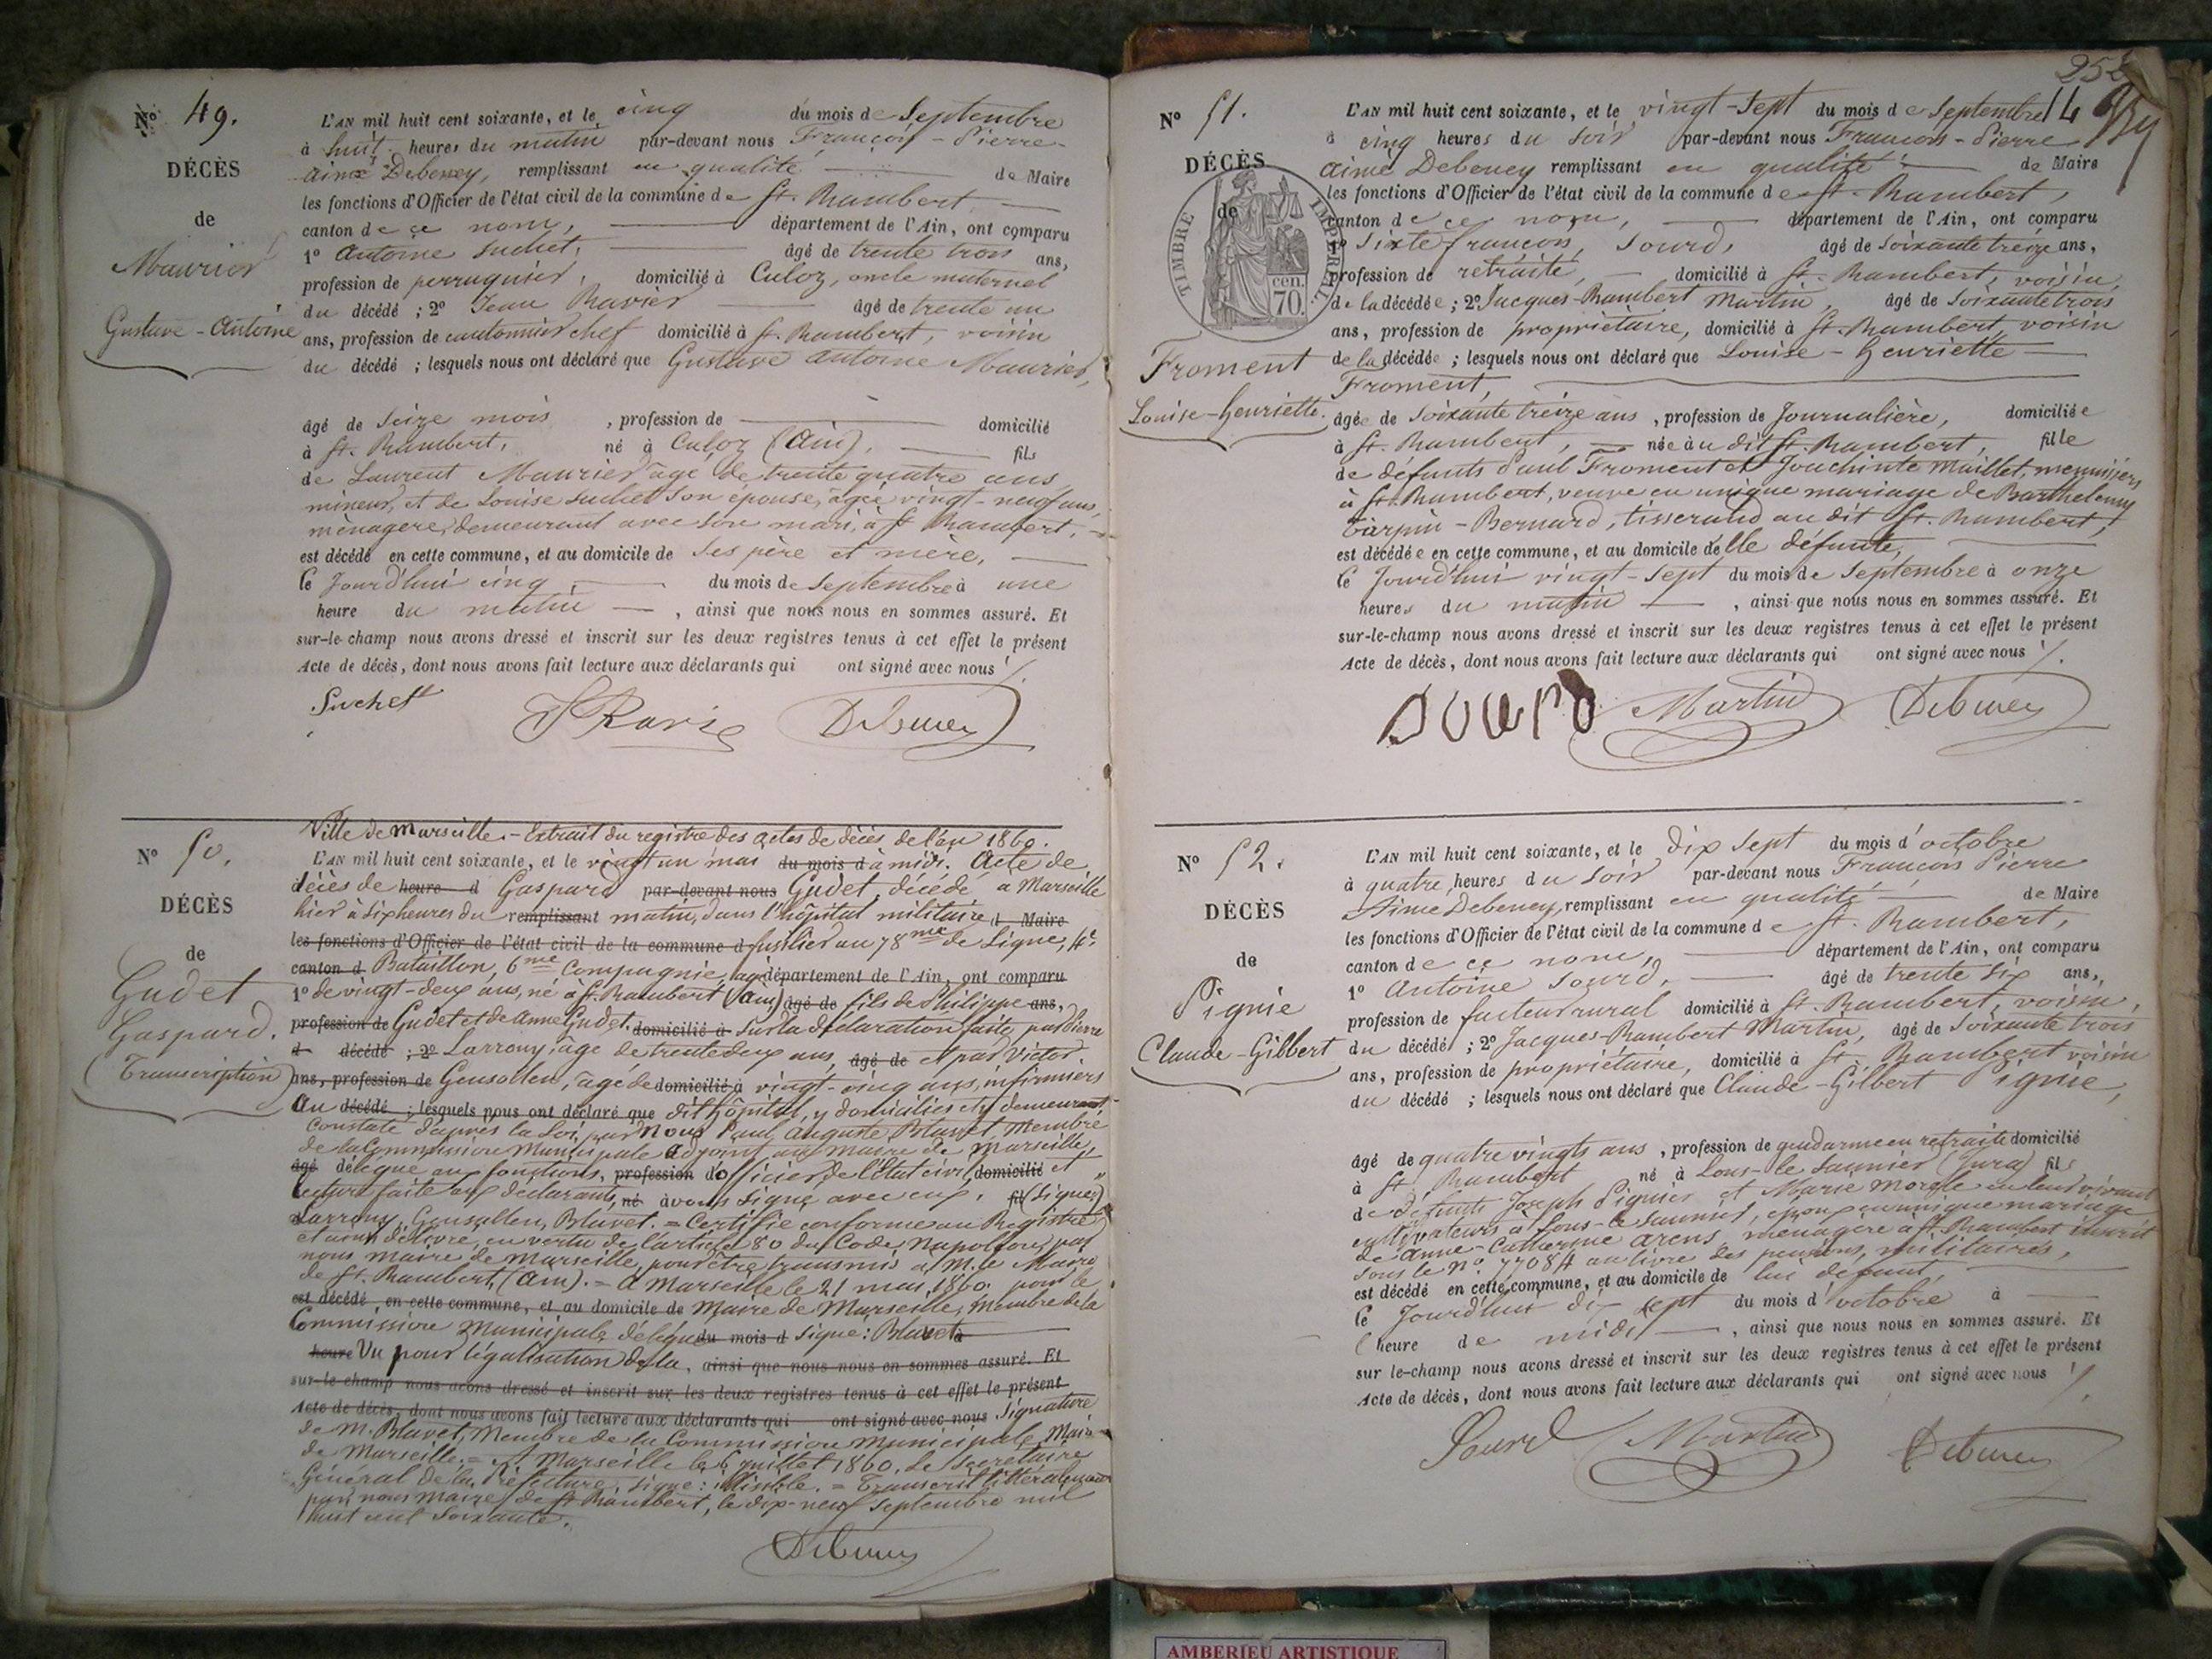 Nº 49.
DÉCÈS
de
Maurier
Gustave-Antoine
L'AN mil huit cent soixante, et le cinq du mois de Septembre
à huit heures du matin par-devant nous François-Pierre-
Aimé Debeney, remplissant en qualité de Maire
les fonctions d'Officier de l'état civil de la commune de St. Rambert
canton de ce nom, département de l'Ain, ont comparu
1º Antoine Suchet, âgé de trente trois ans,
profession de perruquier, domicilié à Culoz, oncle maternel
du décédé ; 2º Jean Ravier âgé de trente un
ans, profession de cantonnier chef domicilié à St. Rambert, voisin
du décédé ; lesquels nous ont déclaré que Gustave Antoine Maurier,
âgé de seize mois, profession de domicilié
à St. Rambert, né à Culoz (Ain), fils
de Laurent Maurier âgé de trente quatre ans
mineur, et de Louise Suchet son épouse, âgée vingt-neuf ans,
ménagère, demeurant avec son mari, à St Rambert,
est décédé en cette commune, et au domicile de ses père et mère,
ce jourd'hui cinq du mois de septembre à une
heure du matin, ainsi que nous nous en sommes assuré. Et
sur-le-champ nous avons dressé et inscrit sur les deux registres tenus à cet effet le présent
Acte de décès, dont nous avons fait lecture aux déclarants qui ont signé avec nous
Suchet Debeney
Nº 50.
DÉCÈS
de
Gudet
Gaspard.
(Transcription)
Ville de Marseille. - Extrait du registre des actes de décès de l'an 1860.
L'AN mil huit cent soixante, et le vingt un mai du mois d à midi. Acte de
décès de heure d Gaspard par-devant nous Gudet, décédé à Marseille
hier à six heures du remplissant matin, dans l'hôpital militaire d Maire
les fonctions d'Officier de l'état civil de la commune d fusilier au 78me de Ligne, 4e
canton d Bataillon, 6me Compagnie, âgé département de l'Ain, ont comparu
1º de vingt-deux ans, né à St. Rambert (Ain) âgé de fils de Philippe ans,
profession de Gudet et de Anne Gudet. domicilié à Sur la déclaration faite par Pierre
d décédé ; 2º Larrony, âgé de trente deux ans, âgé de et par Victor
ans, profession de Gensollen, âgé de domicilié à vingt-cinq ans, infirmiers
au décédé ; lesquels nous ont déclaré que dit hôpital, y domiciliés et y demeurant.
Constaté d'après la loi, par Nous Paul Auguste Bluvet, Membre
de la Commission Municipale Adjoint au Maire de Marseille,
âgé délégué aux fonctions, profession d'officier de l'Etat civil domicilié et
lecture faite aux déclarants, né avons signé avec eux. fil (Signés)
Larrony, Gensollen, Bluvet. = Certifié conforme au Registre
et delivré, en vertu de l'article 80 du Code Napoléon, par
nous maire de Marseille, pour être transmis à M. le Maire
de St. Rambert, (Ain). = à Marseille le 21 mai 1860. pour le
est décédé en cette commune, et au domicile de Maire de Marseille, Membre de la
Commission Municipale délégué du mois d signé : Bluvet à
heure Vu pour légalisation de la, ainsi que nous nous en sommes assuré. Et
sur-le-champ nous avons dressé et inscrit sur les deux registres tenus à cet effet le présent
Acte de décès, dont nous avons fait lecture aux déclarants qui ont signé avec nous signature
de M. Bluvet, Membre de la Commission Municipale, Maire
de Marseille. = A Marseille le 6 juillet 1860. Le Secrétaire
Général de la Préfecture, signé : illisible. = Transcrit littéralement
par nous maire de St Rambert, le dix-neuf septembre mil
huit cent soixante.
Debeney
14
Nº 51.
DÉCÈS
de
TIMBRE IMPÉRIAL
70 cen.
Froment
Louise-Henriette.
L'AN mil huit cent soixante, et le vingt-sept du mois de Septembre
à cinq heures du soir par-devant nous François-Pierre
Aimé Debeney remplissant en qualité de Maire
les fonctions d'Officier de l'état civil de la commune de St. Rambert,
canton de ce nom, département de l'Ain, ont comparu
1º Sixte françois, Sourd, âgé de soixante treize ans,
profession de retraité, domicilié à St. Rambert, voisin,
de la décédée ; 2º Jacques-Rambert Martin, âgé de soixante trois
ans, profession de propriétaire, domicilié à St. Rambert, voisin
de la décédée ; lesquels nous ont déclaré que Louise-Henriette
Froment,
âgée de soixante treize ans, profession de Journalière, domiciliée
à St. Rambert, née au dit St. Rambert, fille
de défunts Paul Froment et Jouchinte Maillet, menuisiers
à St. Rambert, veuve en unique mariage de Barthelemy
Tarpin-Bernard, tisserand au dit St. Rambert,
est décédée en cette commune, et au domicile d'elle défunte,
ce jourd'hui vingt-sept du mois de Septembre à onze
heures du matin, ainsi que nous nous en sommes assuré. Et
sur-le-champ nous avons dressé et inscrit sur les deux registres tenus à cet effet le présent
Acte de décès, dont nous avons fait lecture aux déclarants qui ont signé avec nous
Sourd Martin Debeney
Nº 52.
DÉCÈS
de
Pignie
Claude-Gilbert
L'AN mil huit cent soixante, et le dix sept du mois d'octobre
à quatre heures du soir par-devant nous François Pierre
Aimé Debeney, remplissant en qualité de Maire
les fonctions d'Officier de l'état civil de la commune de St. Rambert,
canton de ce nom, département de l'Ain, ont comparu
1º Antoine Sourd, âgé de trente six ans,
profession de facteur rural domicilié à St. Rambert, voisin,
du décédé ; 2º Jacques-Rambert Martin, âgé de soixante trois
ans, profession de propriétaire, domicilié à St. Rambert voisin
du décédé ; lesquels nous ont déclaré que Claude-Gilbert Pignie,
âgé de quatre vingts ans, profession de gendarme en retraite domicilié
à St. Rambert né à Lons-le-Saunier (Jura) fils
de défunts Joseph Pignier et Marie Morele en leur vivant
cultivateurs à Lons-le-Saunier, époux en unique mariage
de Anne-Catherine Arens, ménagère à St. Rambert inscrit
sous le nº 77084 au livre des pensions, militaires,
est décédé en cette commune, et au domicile de lui défunt,
ce jourd'hui dix sept du mois d'octobre à
l'heure de midi, ainsi que nous nous en sommes assuré. Et
sur le-champ nous avons dressé et inscrit sur les deux registres tenus à cet effet le présent
Acte de décès, dont nous avons fait lecture aux déclarants qui ont signé avec nous
Sourd Martin Debeney
AMBERIEU ARTISTIQUE